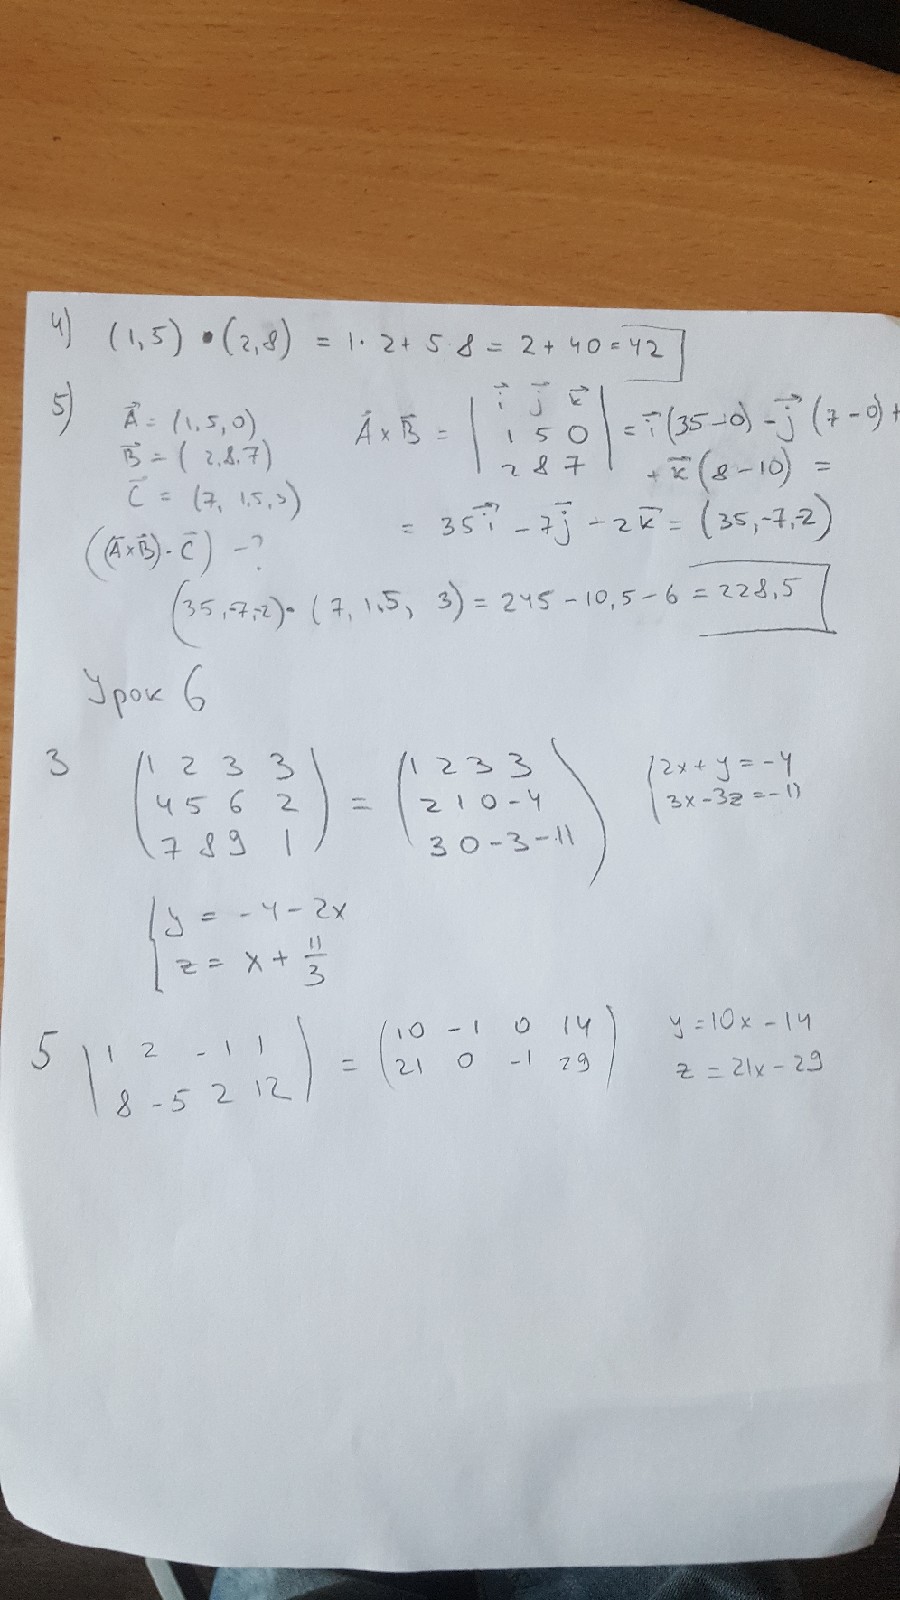 4) (1,5) • (2,8) = 1·2+5·8 = 2+40 = 42
5) A⃗ = (1,5,0)
B⃗ = (2,8,7)
C⃗ = (7, 1,5, 3)
((A⃗×B⃗)·C⃗) -?
A⃗×B⃗ = | i⃗ j⃗ k⃗ |
1 5 0
2 8 7
= i⃗(35-0) - j⃗(7-0)+
+ k⃗(8-10) =
= 35i⃗ - 7j⃗ - 2k⃗ = (35,-7,-2)
(35,-7,-2)·(7, 1,5, 3) = 245-10,5-6 = 228,5
Урок 6
3
(1 2 3 3
4 5 6 2
7 8 9 1)
=
(1 2 3 3
2 1 0 -4
3 0 -3 -11)
{2x+y=-4
3x-3z=-11
{y = -4-2x
z = x + 11/3
5
|1 2 -1 1
8 -5 2 12)
=
(10 -1 0 14
21 0 -1 29)
y=10x-14
z=21x-29